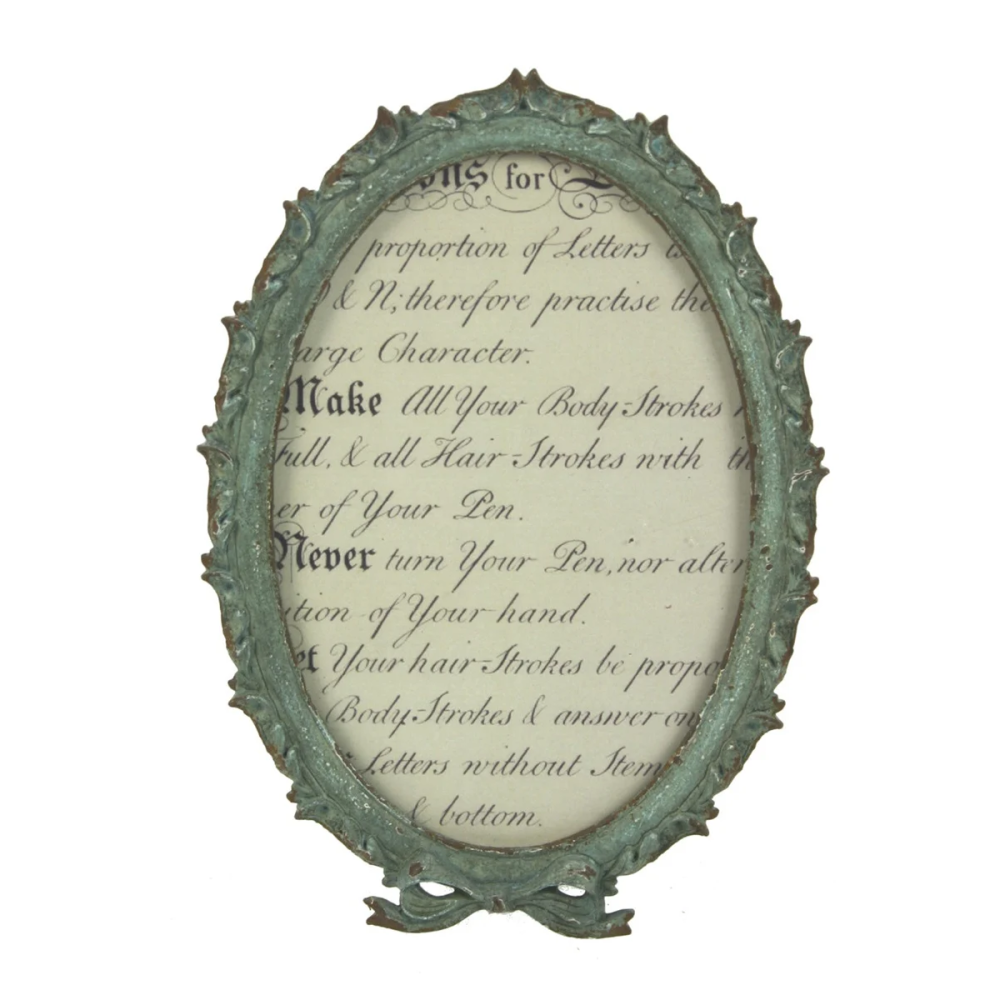 for
proportion of Letters is
& N; therefore practise the
arge Character.
Make All Your Body-Strokes
Full, & all Hair-Strokes with th
er of Your Pen.
Never turn Your Pen, nor alter
ition of Your hand.
et Your hair-Strokes be propo
Body-Strokes & answer on
Letters without Stem
& bottom.